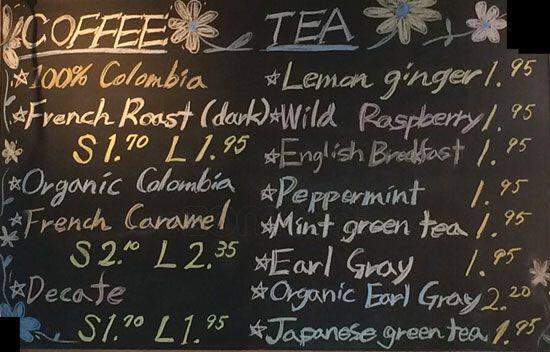 COFFEE
☆100% Colombia
☆French Roast (dark)
S 1.70 L 1.95
☆Organic Colombia
☆French Caramel
S 2.10 L 2.35
☆Decate
S 1.70 L 1.95
TEA
☆Lemon ginger 1.95
☆Wild Raspberry 1.95
☆English Breakfast 1.95
☆Peppermint 1.95
☆Mint green tea 1.95
☆Earl Gray 1.95
☆Organic Earl Gray 2.20
☆Japanese green tea 1.95